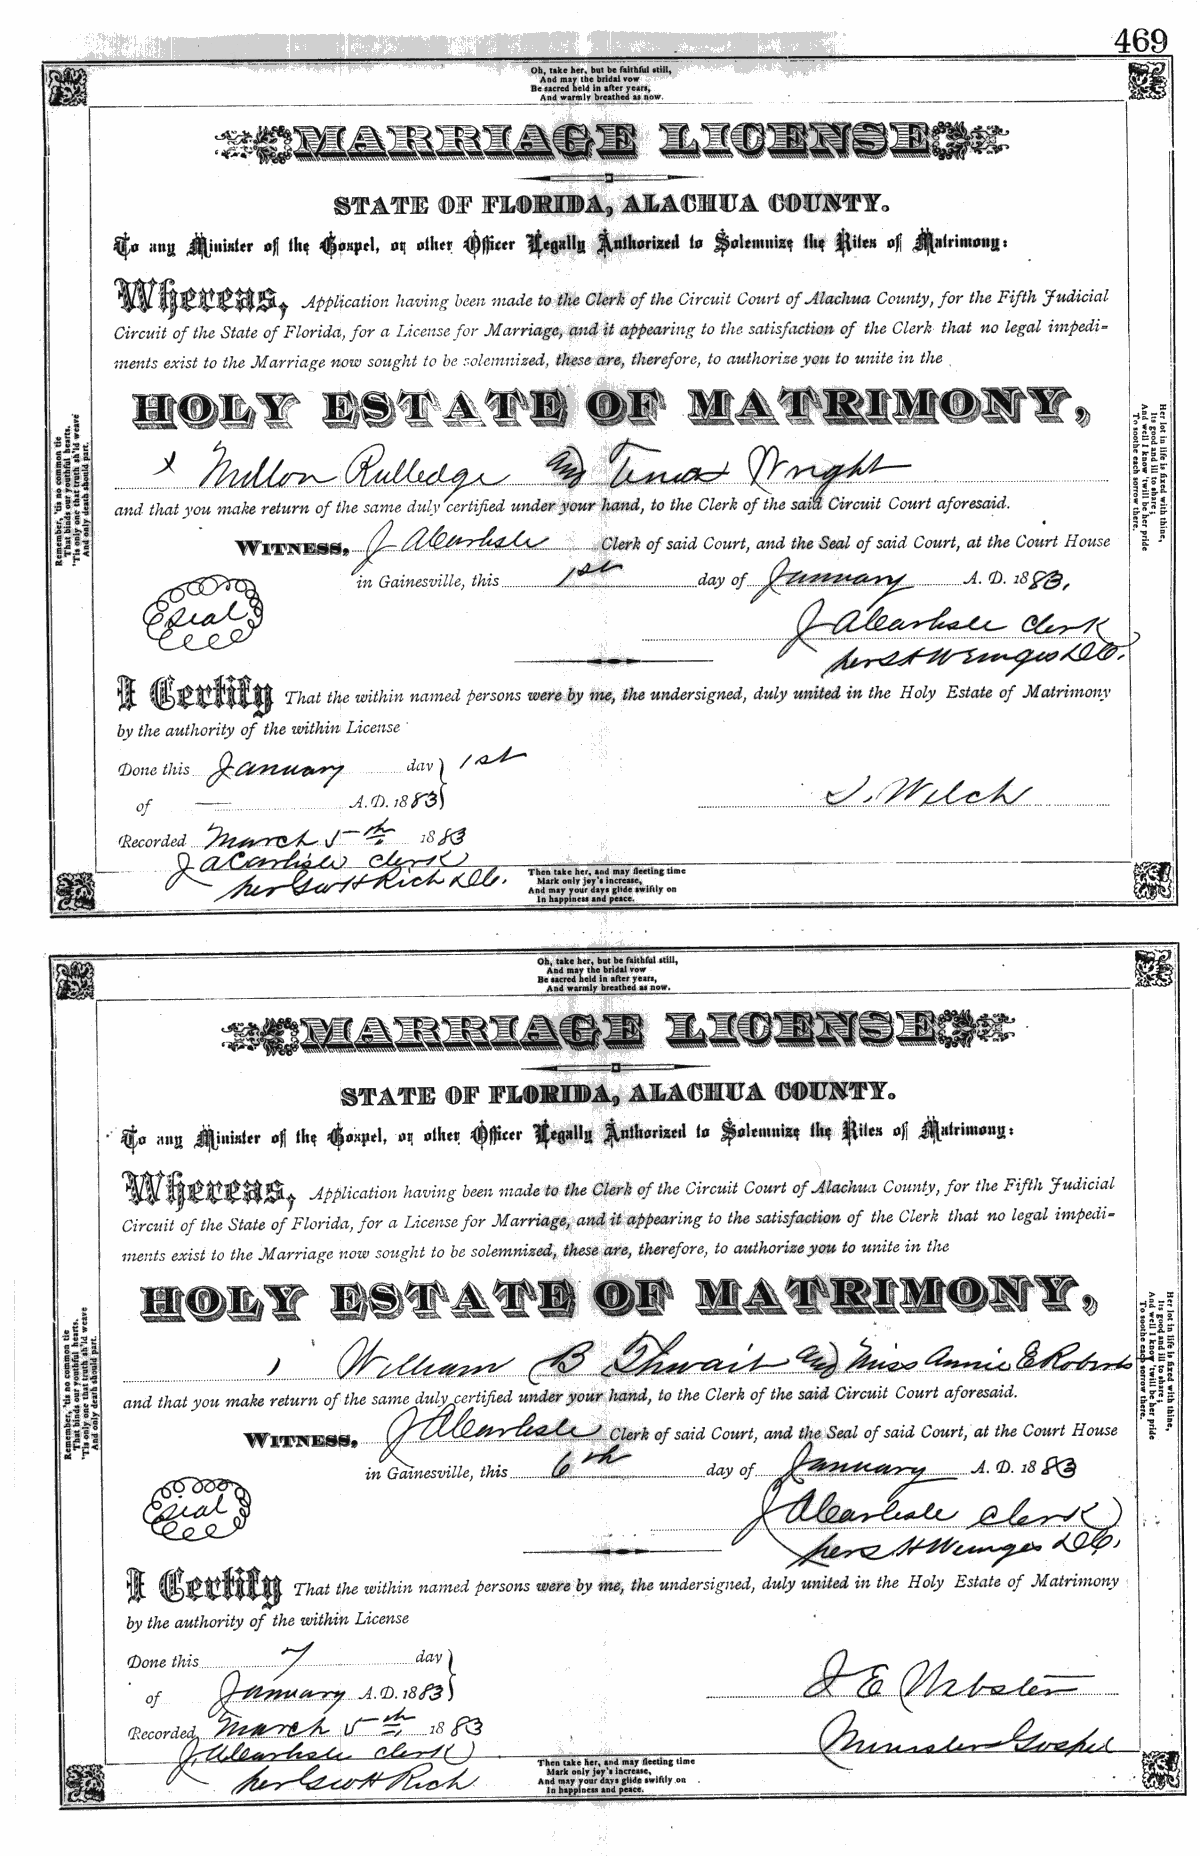 469
Oh, take her, but be faithful still,
And may the bridal vow
Be sacred held in after years,
And warmly breathed as now.
MARRIAGE LICENSE
STATE OF FLORIDA, ALACHUA COUNTY.
To any Minister of the Gospel, or other Officer Legally Authorized to Solemnize the Rites of Matrimony:
Whereas, Application having been made to the Clerk of the Circuit Court of Alachua County, for the Fifth Judicial
Circuit of the State of Florida, for a License for Marriage, and it appearing to the satisfaction of the Clerk that no legal impedi-
ments exist to the Marriage now sought to be solemnized, these are, therefore, to authorize you to unite in the
HOLY ESTATE OF MATRIMONY,
x Millon Rulledge and Tena Wright
and that you make return of the same duly certified under your hand, to the Clerk of the said Circuit Court aforesaid.
WITNESS, J A Carlisle Clerk of said Court, and the Seal of said Court, at the Court House
in Gainesville, this 1st day of January A. D. 1883.
Seal
J A Carlisle Clerk
per S H Wienges D.C.
I Certify That the within named persons were by me, the undersigned, duly united in the Holy Estate of Matrimony
by the authority of the within License
Done this January day 1st
of — A.D. 1883
S. Welch
Recorded March 5th 1883
J A Carlisle Clerk
per Geo H Rich D.C.
Then take her, and may fleeting time
Mark only joy's increase,
And may your days glide swiftly on
In happiness and peace.
Remember, 'tis no common tie
That binds our youthful hearts.
'Tis only one that truth sh'ld weave
And only death should part.
Her lot in life is fixed with thine,
Its good and ill to share;
And well I know 'twill be her pride
To soothe each sorrow there.
Oh, take her, but be faithful still,
And may the bridal vow
Be sacred held in after years,
And warmly breathed as now.
MARRIAGE LICENSE
STATE OF FLORIDA, ALACHUA COUNTY.
To any Minister of the Gospel, or other Officer Legally Authorized to Solemnize the Rites of Matrimony:
Whereas, Application having been made to the Clerk of the Circuit Court of Alachua County, for the Fifth Judicial
Circuit of the State of Florida, for a License for Marriage, and it appearing to the satisfaction of the Clerk that no legal impedi-
ments exist to the Marriage now sought to be solemnized, these are, therefore, to authorize you to unite in the
HOLY ESTATE OF MATRIMONY,
William B Thwait and Miss Annie E Roberts
and that you make return of the same duly certified under your hand, to the Clerk of the said Circuit Court aforesaid.
WITNESS, J A Carlisle Clerk of said Court, and the Seal of said Court, at the Court House
in Gainesville, this 6th day of January A. D. 1883
Seal
J A Carlisle Clerk
per S H Wienges D.C.
I Certify That the within named persons were by me, the undersigned, duly united in the Holy Estate of Matrimony
by the authority of the within License
Done this 7 day
of January A.D. 1883
J E Webster
Recorded March 5th 1883
Minister Gospel
J A Carlisle Clerk
per Geo H Rich
Then take her, and may fleeting time
Mark only joy's increase,
And may your days glide swiftly on
In happiness and peace.
Remember, 'tis no common tie
That binds our youthful hearts.
'Tis only one that truth sh'ld weave
And only death should part.
Her lot in life is fixed with thine,
Its good and ill to share;
And well I know 'twill be her pride
To soothe each sorrow there.